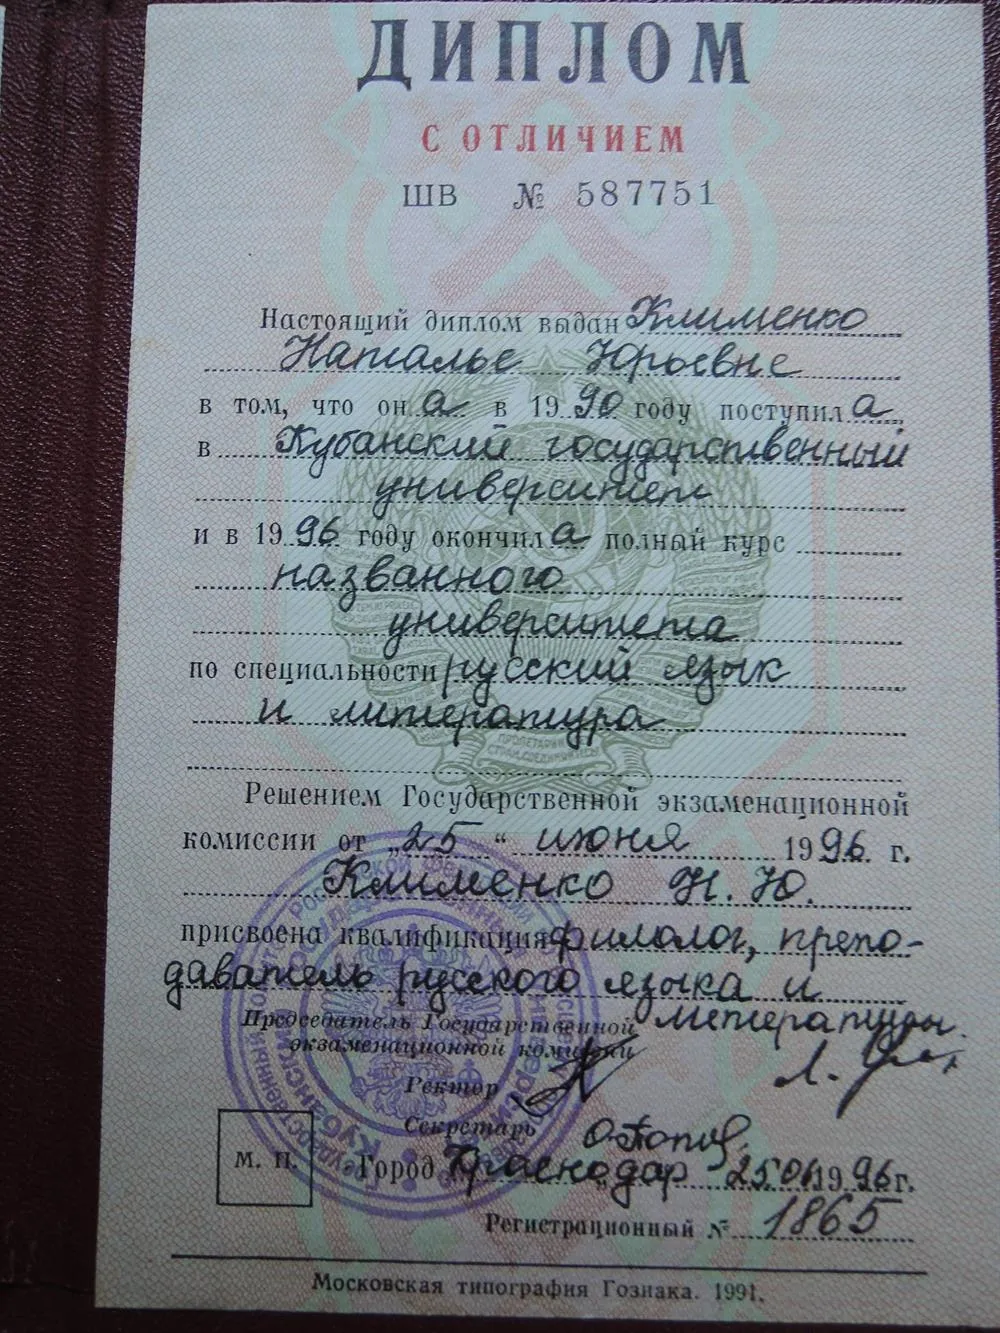 ДИПЛОМ
С ОТЛИЧИЕМ
ШВ № 587751
Настоящий диплом выдан Клименко
Наталье Юрьевне
в том, что она в 1990 году поступила
в Кубанский государственный
университет
и в 1996 году окончила полный курс
названного
университета
по специальности русский язык
и литература
Решением Государственной экзаменационной
комиссии от „25“ июня 1996 г.
Клименко Н. Ю.
присвоена квалификация филолог, препо-
даватель русского языка и
литературы.
Председатель Государственной
экзаменационной комиссии
Ректор
Секретарь
М. П.
Город Краснодар 25.06.1996 г.
Регистрационный № 1865
Московская типография Гознака. 1991.